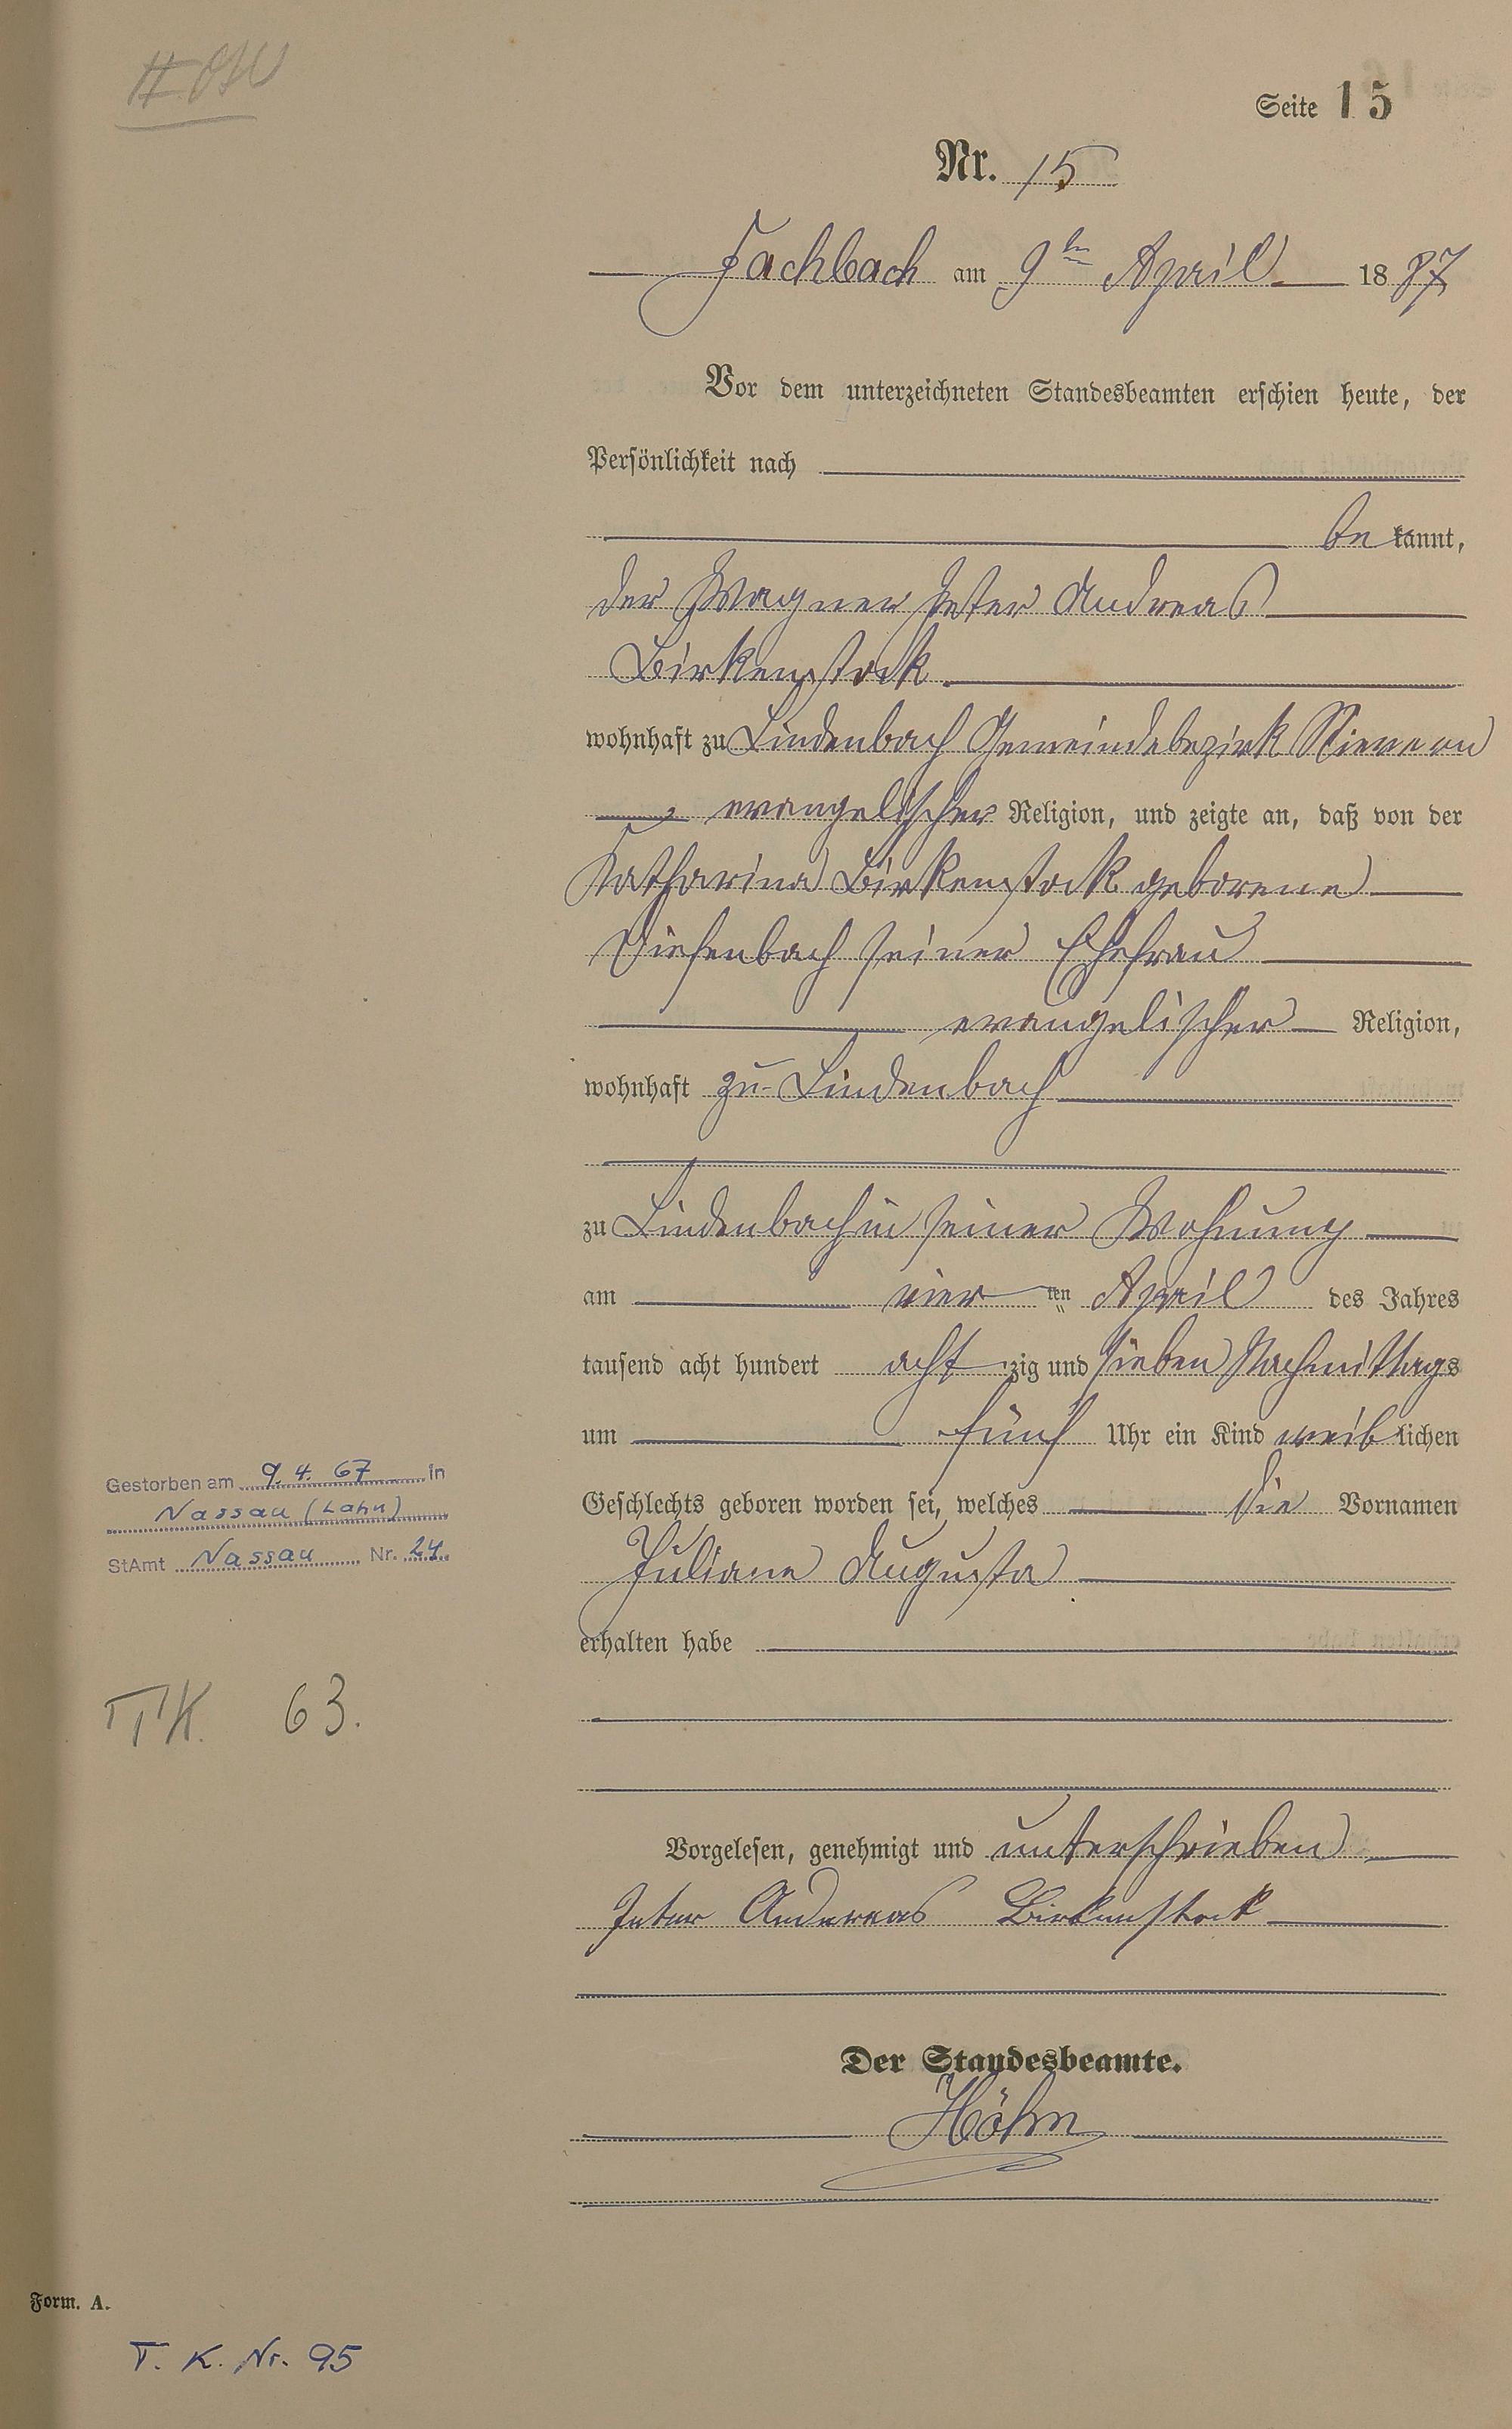 Seite 15
Nr. 15
Fachbach am 9ten April 1887
Vor dem unterzeichneten Standesbeamten erschien heute, der
Persönlichkeit nach
bekannt,
der Wagner Peter Andreas
Birkenstock
wohnhaft zu Lindenbach Gemeindebezirk Nievern
evangelischer Religion, und zeigte an, daß von der
Katharina Birkenstock geborene
Diefenbach seiner Ehefrau
evangelischer Religion,
wohnhaft zu Lindenbach
zu Lindenbach in seiner Wohnung
am vierten April des Jahres
tausend acht hundert achtzig und sieben Nachmittags
um fünf Uhr ein Kind weiblichen
Geschlechts geboren worden sei, welches die Vornamen
Juliane Augusta
erhalten habe
Vorgelesen, genehmigt und unterschrieben
Peter Andereas Birkenstock
Der Standesbeamte.
Höhn
Gestorben am 9.4.67 in
Nassau (Lahn)
StAmt Nassau Nr. 24.
TK. 63.
Form. A.
T. K. Nr. 95